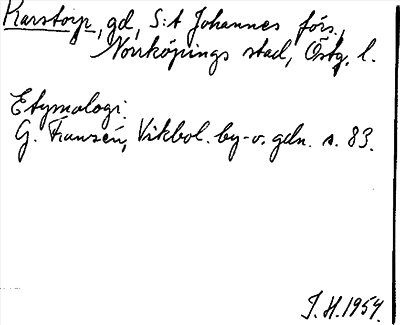 Karstorp, gd, S:t Johannes förs.,
Norrköpings stad, Östg. l.
Etymologi:
G. Franzén, Vikbol. by- o. gdn. s. 83.
J. H. 1954.